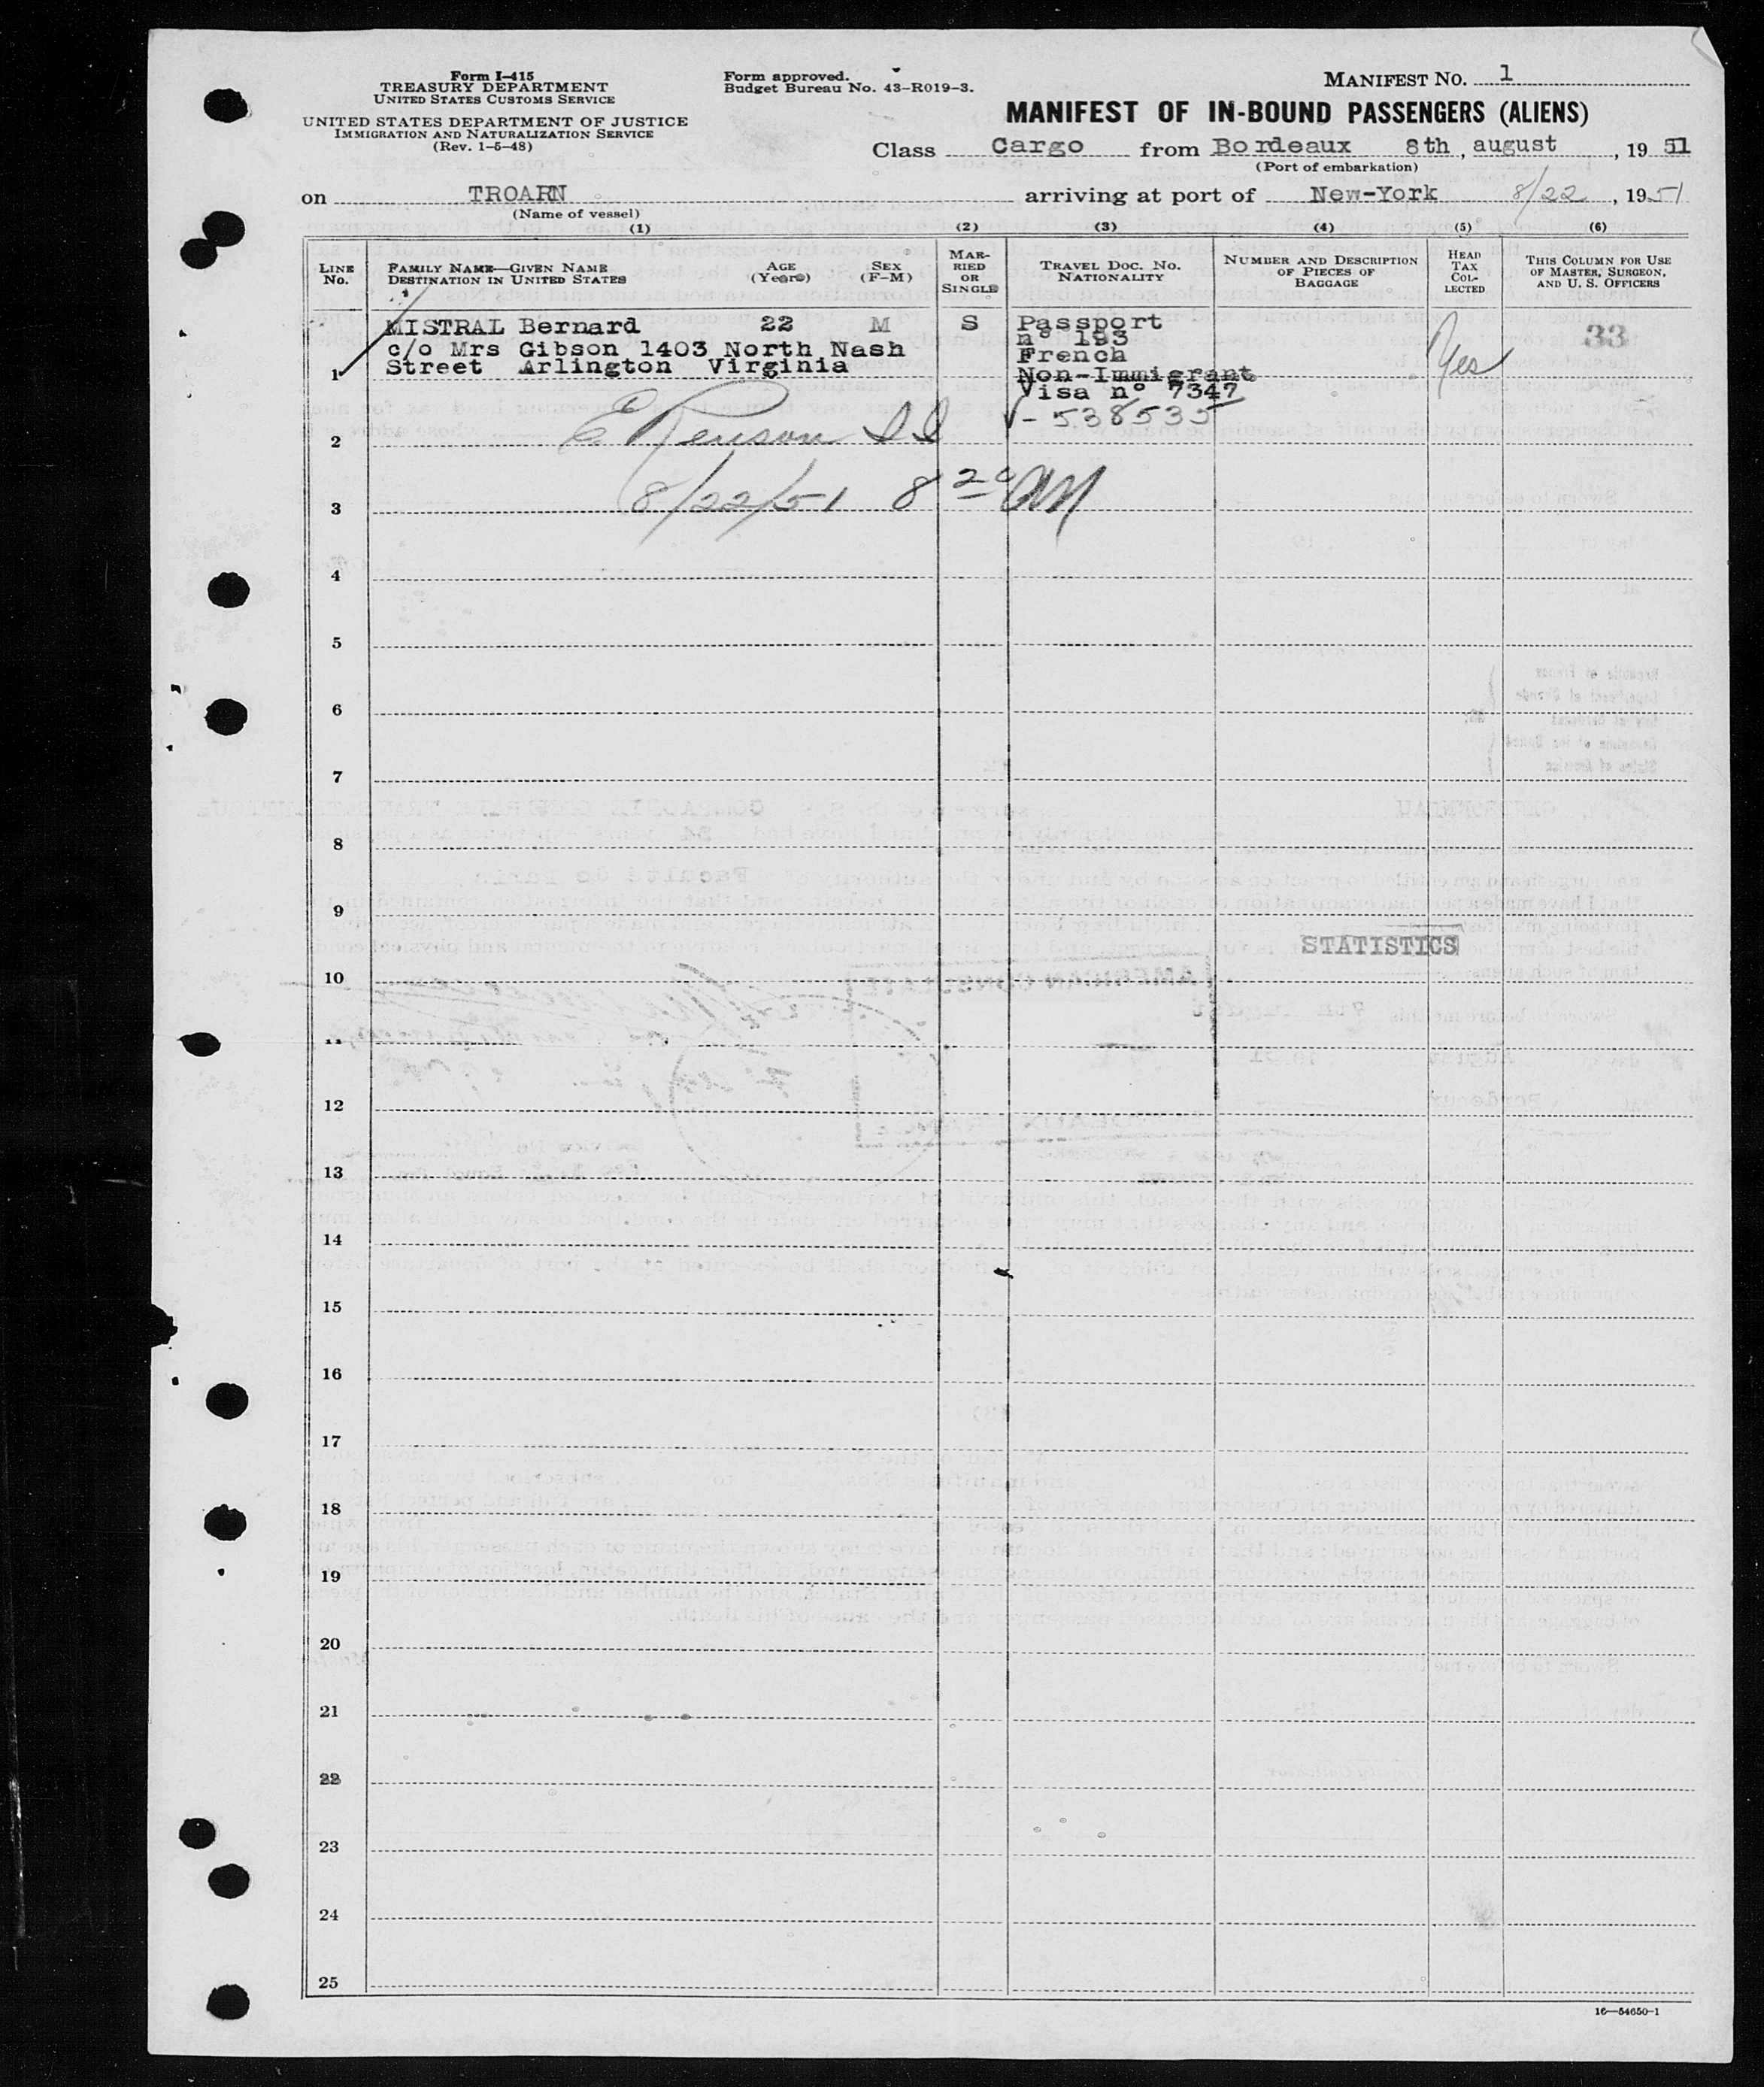 Form I-415
TREASURY DEPARTMENT
UNITED STATES CUSTOMS SERVICE
UNITED STATES DEPARTMENT OF JUSTICE
IMMIGRATION AND NATURALIZATION SERVICE
(Rev. 1-5-48)
Form approved.
Budget Bureau No. 43-R019-3.
MANIFEST NO. 1
MANIFEST OF IN-BOUND PASSENGERS (ALIENS)
Class Cargo from Bordeaux 8th, august, 19 51
(Port of embarkation)
on TROARN arriving at port of New-York 8/22, 1951
(Name of vessel)
(1) (2) (3) (4) (5) (6)
LINE No.
FAMILY NAME—GIVEN NAME
DESTINATION IN UNITED STATES
AGE (Years)
SEX (F-M)
MARRIED OR SINGLE
TRAVEL DOC. NO.
NATIONALITY
NUMBER AND DESCRIPTION
OF PIECES OF
BAGGAGE
HEAD
TAX
COL-
LECTED
THIS COLUMN FOR USE
OF MASTER, SURGEON,
AND U. S. OFFICERS
MISTRAL Bernard 22 M S Passport
n° 193
c/o Mrs Gibson 1403 North Nash
French
Street Arlington Virginia
1
Non-Immigrant
Visa n° 7347
Yes
33
V- 538535
2
8/22/51 8 20 AM
3
4
5
6
7
8
9
STATISTICS
10
11
12
13
14
15
16
17
18
19
20
21
22
23
24
25
16—54650-1